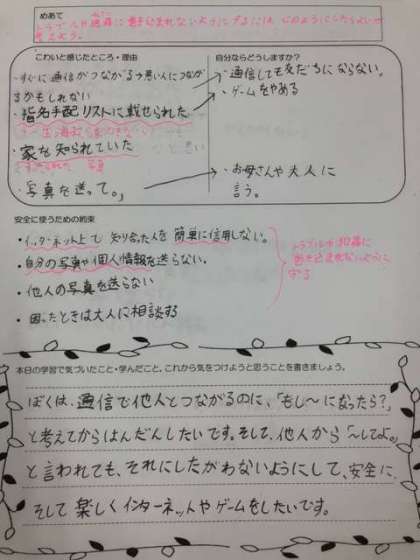 めあて
トラブルや犯罪に巻き込まれないようにするには、どのようにしたらよいか
考えよう。
こわいと感じたところ・理由
自分ならどうしますか？
・すぐに通信がつながるっ悪い人につなが
るかもしれない
・通信しても友だちにならない。
・指名手配リストに載せられた
・ゲームをやめる
・家を知られていた
・写真を送って。
・お母さんや大人に
言う。
安全に使うための約束
・インターネット上で知り合った人を簡単に信用しない。
・自分の写真や個人情報を送らない。
・他人の写真を送らない
・困ったときは大人に相談する
トラブルや犯罪に
巻き込まれないように
守る
本日の学習で気づいたこと・学んだこと、これから気をつけようと思うことを書きましょう。
ぼくは、通信で他人とつながるのに、「もし〜になったら？」
と考えてからはんだんしたいです。そして、他人から「〜してよ。」
と言われても、それにしたがわないようにして、安全に
そして楽しくインターネットやゲームをしたいです。